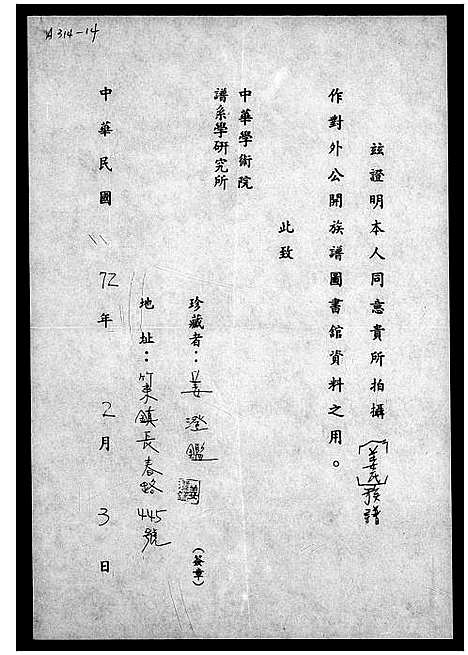 A314-14
茲證明本人同意貴所拍攝〔姜氏〕族譜
作對外公開族譜圖書館資料之用。
此致
中華學術院
譜系學研究所
珍藏者：姜澄鑑（簽章）
地址：竹東鎮長春路445號
中華民國72年2月3日